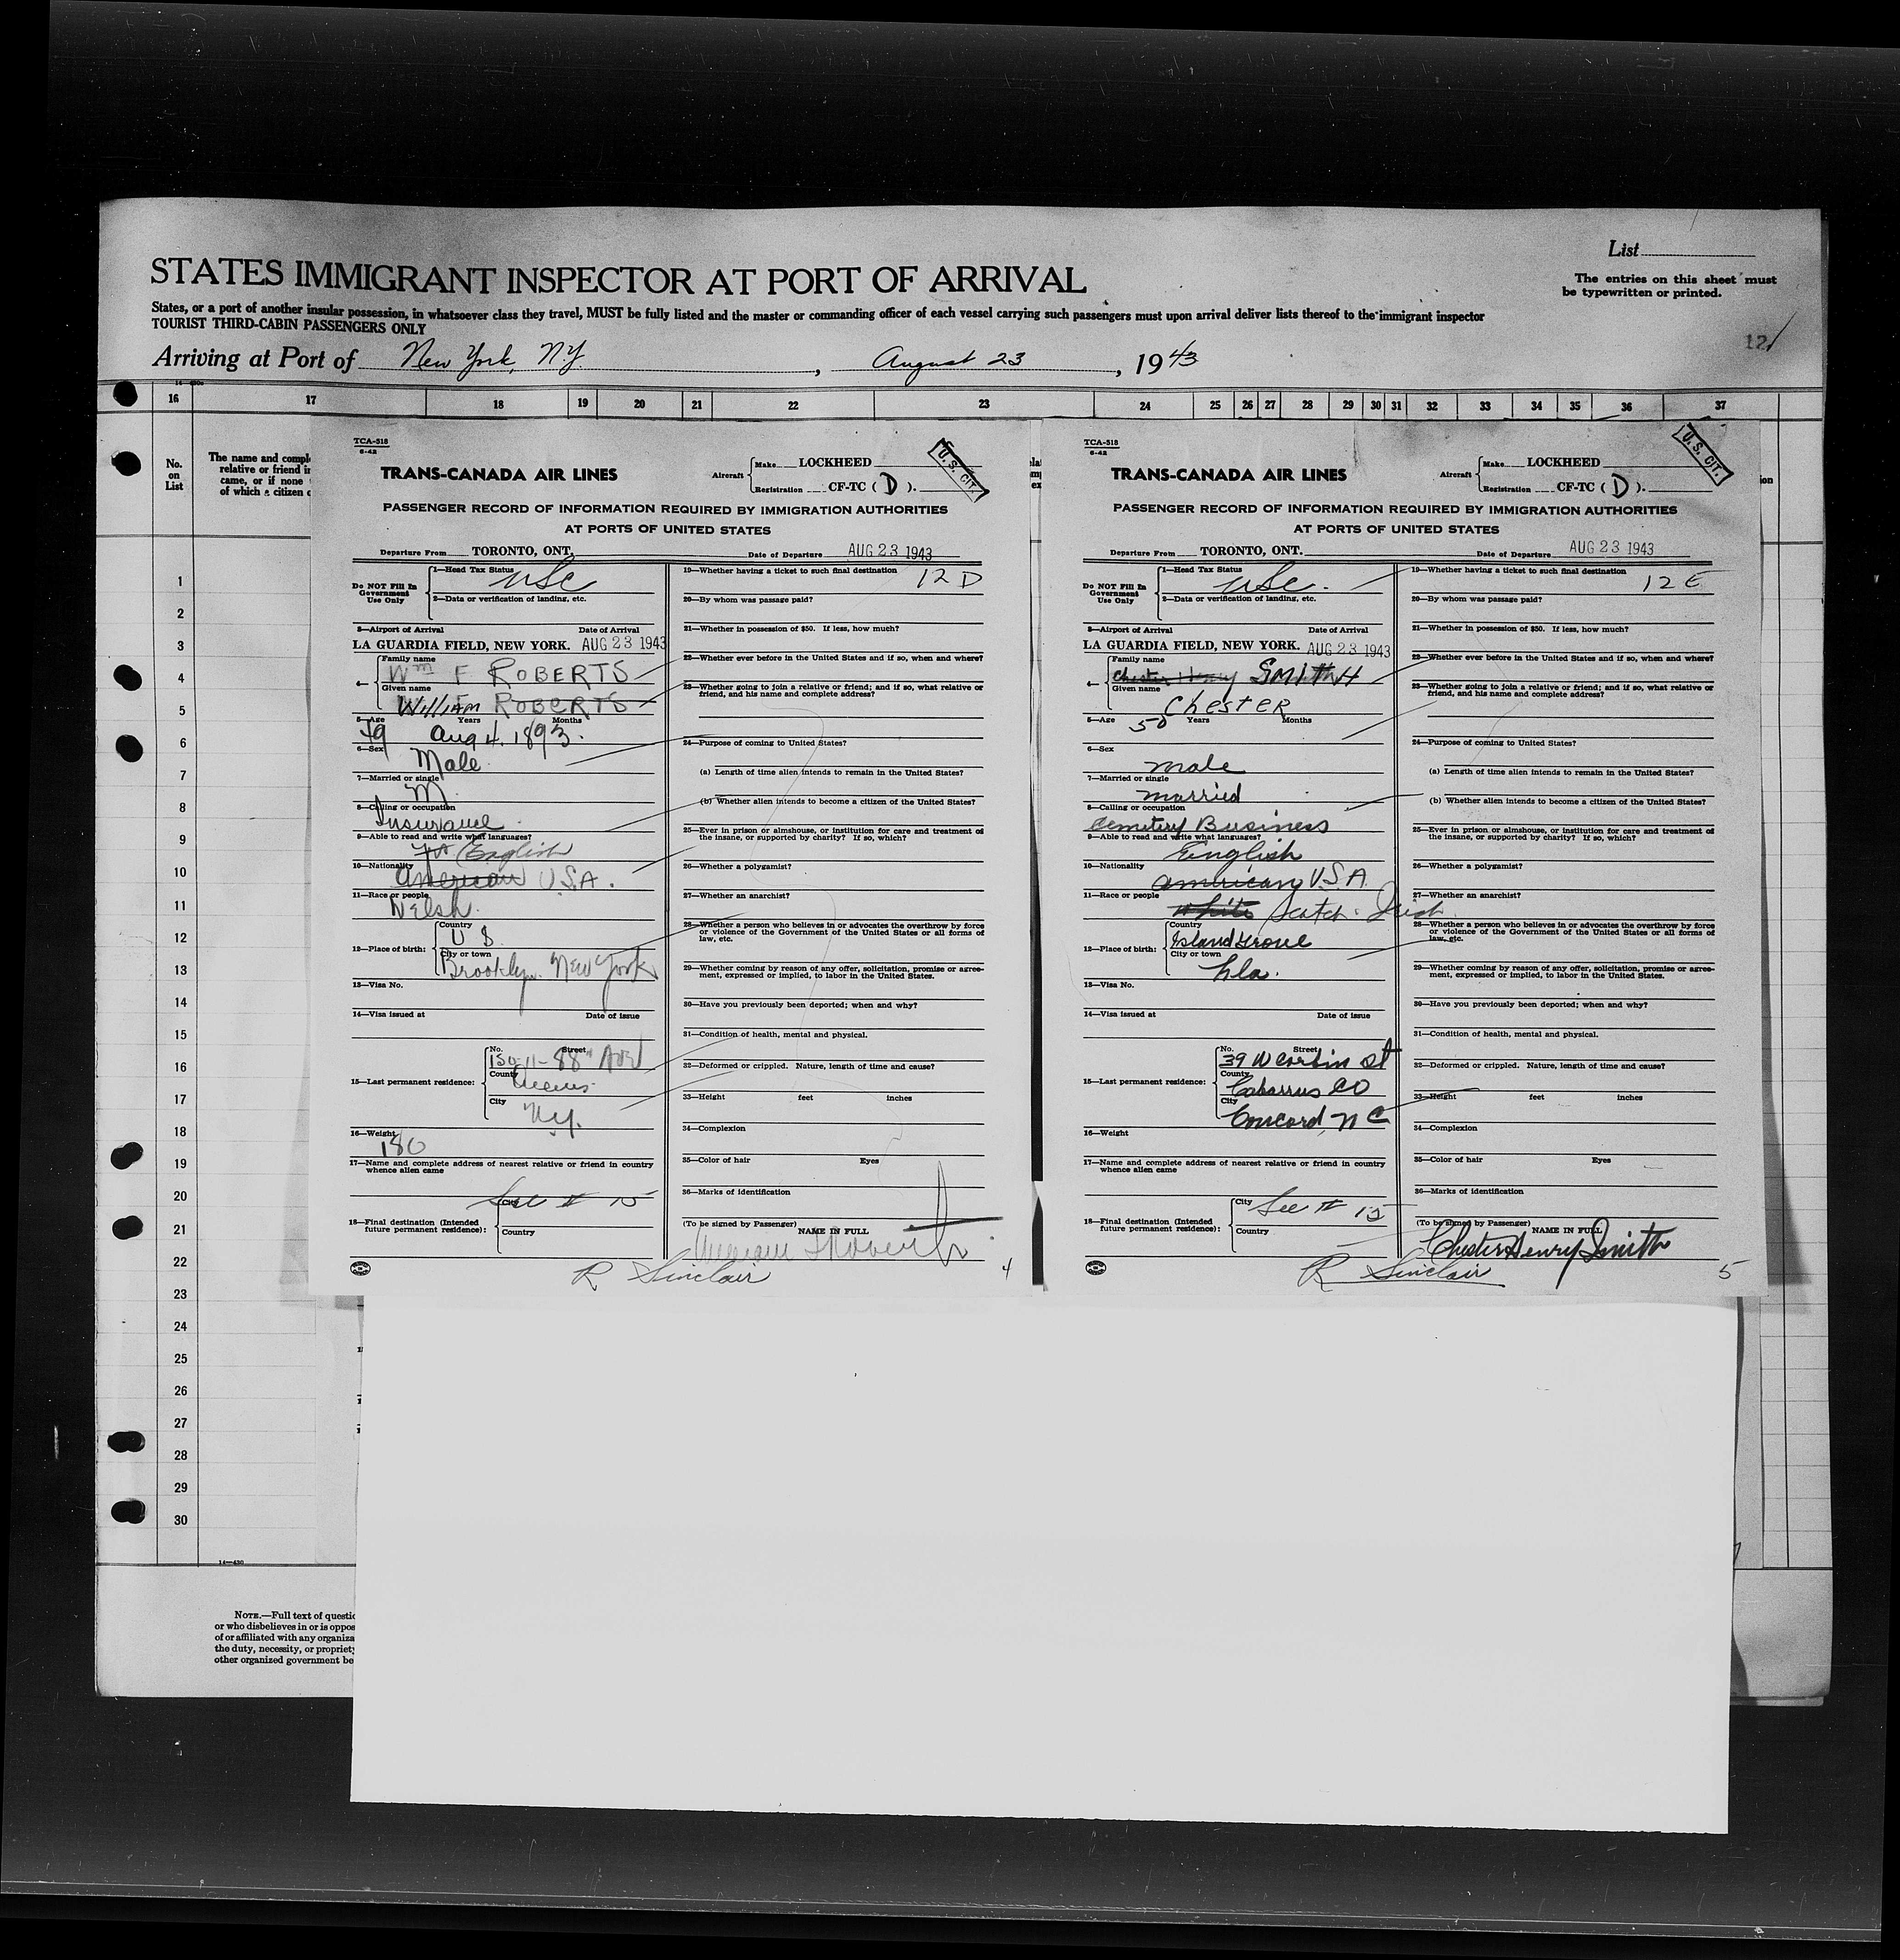 List
STATES IMMIGRANT INSPECTOR AT PORT OF ARRIVAL
The entries on this sheet must
be typewritten or printed.
States, or a port of another insular possession, in whatsoever class they travel, MUST be fully listed and the master or commanding officer of each vessel carrying such passengers must upon arrival deliver lists thereof to the immigrant inspector
TOURIST THIRD-CABIN PASSENGERS ONLY
12
Arriving at Port of New York, N.Y., August 23, 1943
16 17 18 19 20 21 22 23 24 25 26 27 28 29 30 31 32 33 34 35 36 37
No.
on
List
The name and compl
relative or friend in
came, or if none
of which a citizen o
1
2
3
4
5
6
7
8
9
10
11
12
13
14
15
16
17
18
19
20
21
22
23
24
25
26
27
28
29
30
14—430
NOTE.—Full text of questio
or who disbelieves in or is oppos
of or affiliated with any organiza
the duty, necessity, or propriety
other organized government be
TCA-518
6-42
TRANS-CANADA AIR LINES
Aircraft Make LOCKHEED
Registration CF-TC ( D ).
U. S. CIT.
PASSENGER RECORD OF INFORMATION REQUIRED BY IMMIGRATION AUTHORITIES
AT PORTS OF UNITED STATES
Departure From TORONTO, ONT. Date of Departure AUG 23 1943
Do NOT Fill In
Government
Use Only
1—Head Tax Status
USC
2—Data or verification of landing, etc.
3—Airport of Arrival Date of Arrival
LA GUARDIA FIELD, NEW YORK. AUG 23 1943
4—
Family name
Wm F ROBERTS
Given name
WilliAM ROBERTS
5—Age Years Months
49 Aug 4. 1893.
6—Sex
Male
7—Married or single
M
8—Calling or occupation
Insurance
9—Able to read and write what languages?
English
10—Nationality
American U.S.A.
11—Race or people
Welsh.
12—Place of birth:
Country
U S
City or town
Brooklyn. New York
13—Visa No.
14—Visa issued at Date of issue
15—Last permanent residence:
No. Street
150-11-88th Ave
County
Queens
City
N.y.
16—Weight
180
17—Name and complete address of nearest relative or friend in country
whence alien came
18—Final destination (Intended
future permanent residence):
City
See # 15
Country
19—Whether having a ticket to such final destination
12 D
20—By whom was passage paid?
21—Whether in possession of $50. If less, how much?
22—Whether ever before in the United States and if so, when and where?
23—Whether going to join a relative or friend; and if so, what relative or
friend, and his name and complete address?
24—Purpose of coming to United States?
(a) Length of time alien intends to remain in the United States?
(b) Whether alien intends to become a citizen of the United States?
25—Ever in prison or almshouse, or institution for care and treatment of
the insane, or supported by charity? If so, which?
26—Whether a polygamist?
27—Whether an anarchist?
28—Whether a person who believes in or advocates the overthrow by force
or violence of the Government of the United States or all forms of
law, etc.
29—Whether coming by reason of any offer, solicitation, promise or agree-
ment, expressed or implied, to labor in the United States.
30—Have you previously been deported; when and why?
31—Condition of health, mental and physical.
32—Deformed or crippled. Nature, length of time and cause?
33—Height feet inches
34—Complexion
35—Color of hair Eyes
36—Marks of identification
(To be signed by Passenger) NAME IN FULL
William F Roberts
R Sinclair
4
TCA-518
6-42
TRANS-CANADA AIR LINES
Aircraft Make LOCKHEED
Registration CF-TC ( D ).
U. S. CIT.
PASSENGER RECORD OF INFORMATION REQUIRED BY IMMIGRATION AUTHORITIES
AT PORTS OF UNITED STATES
Departure From TORONTO, ONT. Date of Departure AUG 23 1943
Do NOT Fill In
Government
Use Only
1—Head Tax Status
USC.
2—Data or verification of landing, etc.
3—Airport of Arrival Date of Arrival
LA GUARDIA FIELD, NEW YORK. AUG 23 1943
4—
Family name
Chester Henry SMITH
Given name
ChestER
5—Age Years Months
50
6—Sex
male
7—Married or single
married
8—Calling or occupation
Cemetery Business
9—Able to read and write what languages?
English
10—Nationality
American U.S.A.
11—Race or people
White Scotch-Irish
12—Place of birth:
Country
Island Grove
City or town
Fla.
13—Visa No.
14—Visa issued at Date of issue
15—Last permanent residence:
No. Street
39 W Corbin St
County
Cabarrus CO
City
Concord, N C
16—Weight
17—Name and complete address of nearest relative or friend in country
whence alien came
18—Final destination (Intended
future permanent residence):
City
See # 15
Country
19—Whether having a ticket to such final destination
12 E
20—By whom was passage paid?
21—Whether in possession of $50. If less, how much?
22—Whether ever before in the United States and if so, when and where?
23—Whether going to join a relative or friend; and if so, what relative or
friend, and his name and complete address?
24—Purpose of coming to United States?
(a) Length of time alien intends to remain in the United States?
(b) Whether alien intends to become a citizen of the United States?
25—Ever in prison or almshouse, or institution for care and treatment of
the insane, or supported by charity? If so, which?
26—Whether a polygamist?
27—Whether an anarchist?
28—Whether a person who believes in or advocates the overthrow by force
or violence of the Government of the United States or all forms of
law, etc.
29—Whether coming by reason of any offer, solicitation, promise or agree-
ment, expressed or implied, to labor in the United States.
30—Have you previously been deported; when and why?
31—Condition of health, mental and physical.
32—Deformed or crippled. Nature, length of time and cause?
33—Height feet inches
34—Complexion
35—Color of hair Eyes
36—Marks of identification
(To be signed by Passenger) NAME IN FULL
Chester Henry Smith
R Sinclair
5